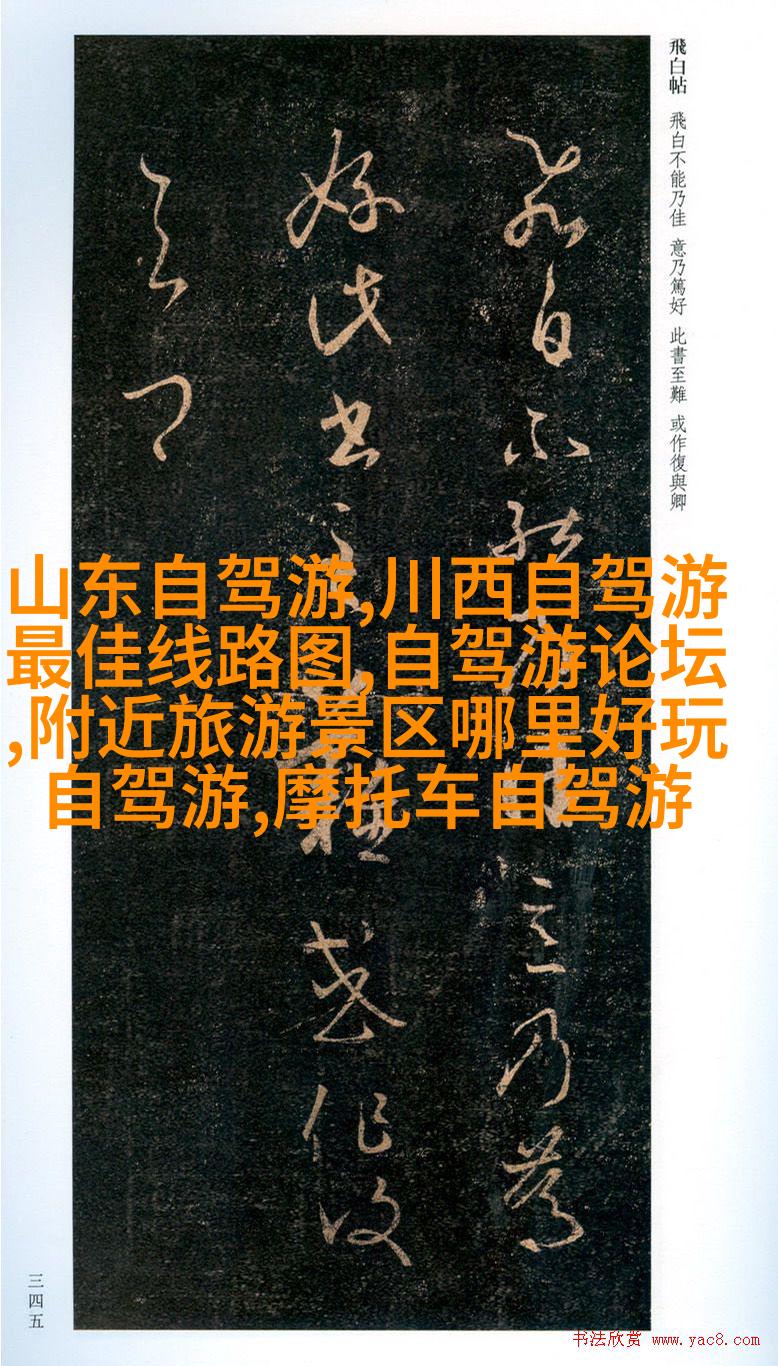 飛白帖 飛白不能乃佳 意乃篤好 此書至難 或作復與卿
飛白不能乃佳意乃篤
好此書至難或作復
與卿
山东自驾游,川西自驾游
最佳线路图,自驾游论坛
,附近旅游景区哪里好玩
自驾游,摩托车自驾游
三四五
书法欣赏 www.yac8.com